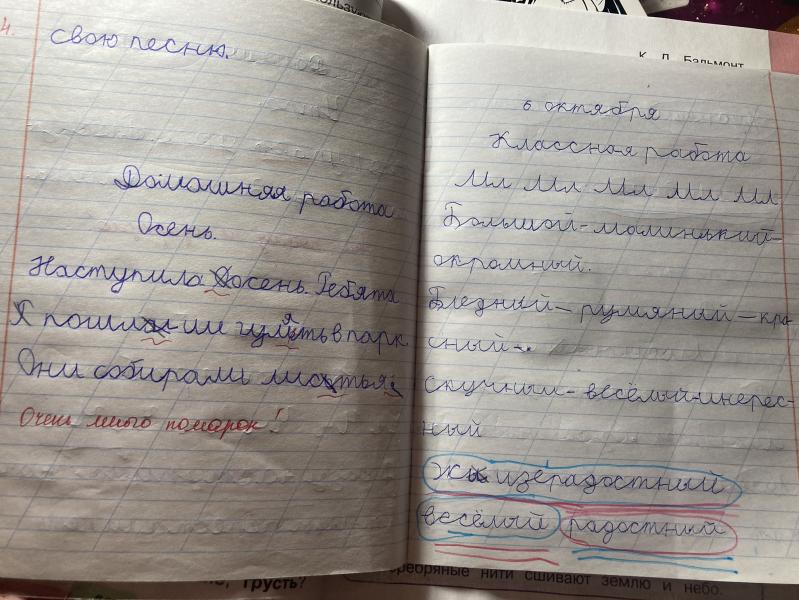 4.
свою песню.
Домашняя работа
Осень.
Наступила осень. Ребята
пошли гулять в парк
Они собирали листья.
Очень много помарок!
пользу
К. Д. Бальмонт
6 октября
Классная работа
Мл Мл Мл Мл Мл
Большой - малинький -
огромный.
Бледный - румяный - кра
сный -
скучный - весёлый - инерес-
ный
Жизерадостный
весёлый радостный
грусть?
серебряные нити сшивают землю и небо.